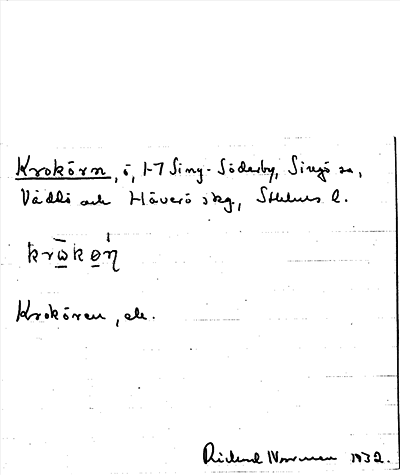 Krokörn, ö, 1-7 Siny-Söderby, Singö sn,
Väddö och Häverö skg, Sthlms l.
krω̄kǫń̥
Krokören, ek.
Rickard Norrman 1932.